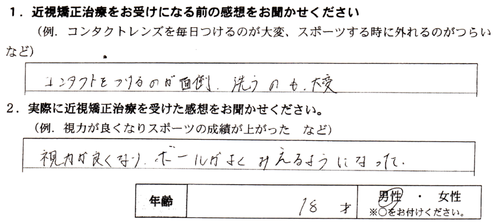 1．近視矯正治療をお受けになる前の感想をお聞かせください
(例．コンタクトレンズを毎日つけるのが大変、スポーツする時に外れるのがつらい
など)
コンタクトをつけるのが面倒．洗うのも、大変
2．実際に近視矯正治療を受けた感想をお聞かせください。
(例．視力が良くなりスポーツの成績が上がった など)
視力が良くなり．ボールがよくみえるようになった．
年齢 18才 男性 ・ 女性
※○をお付けください。